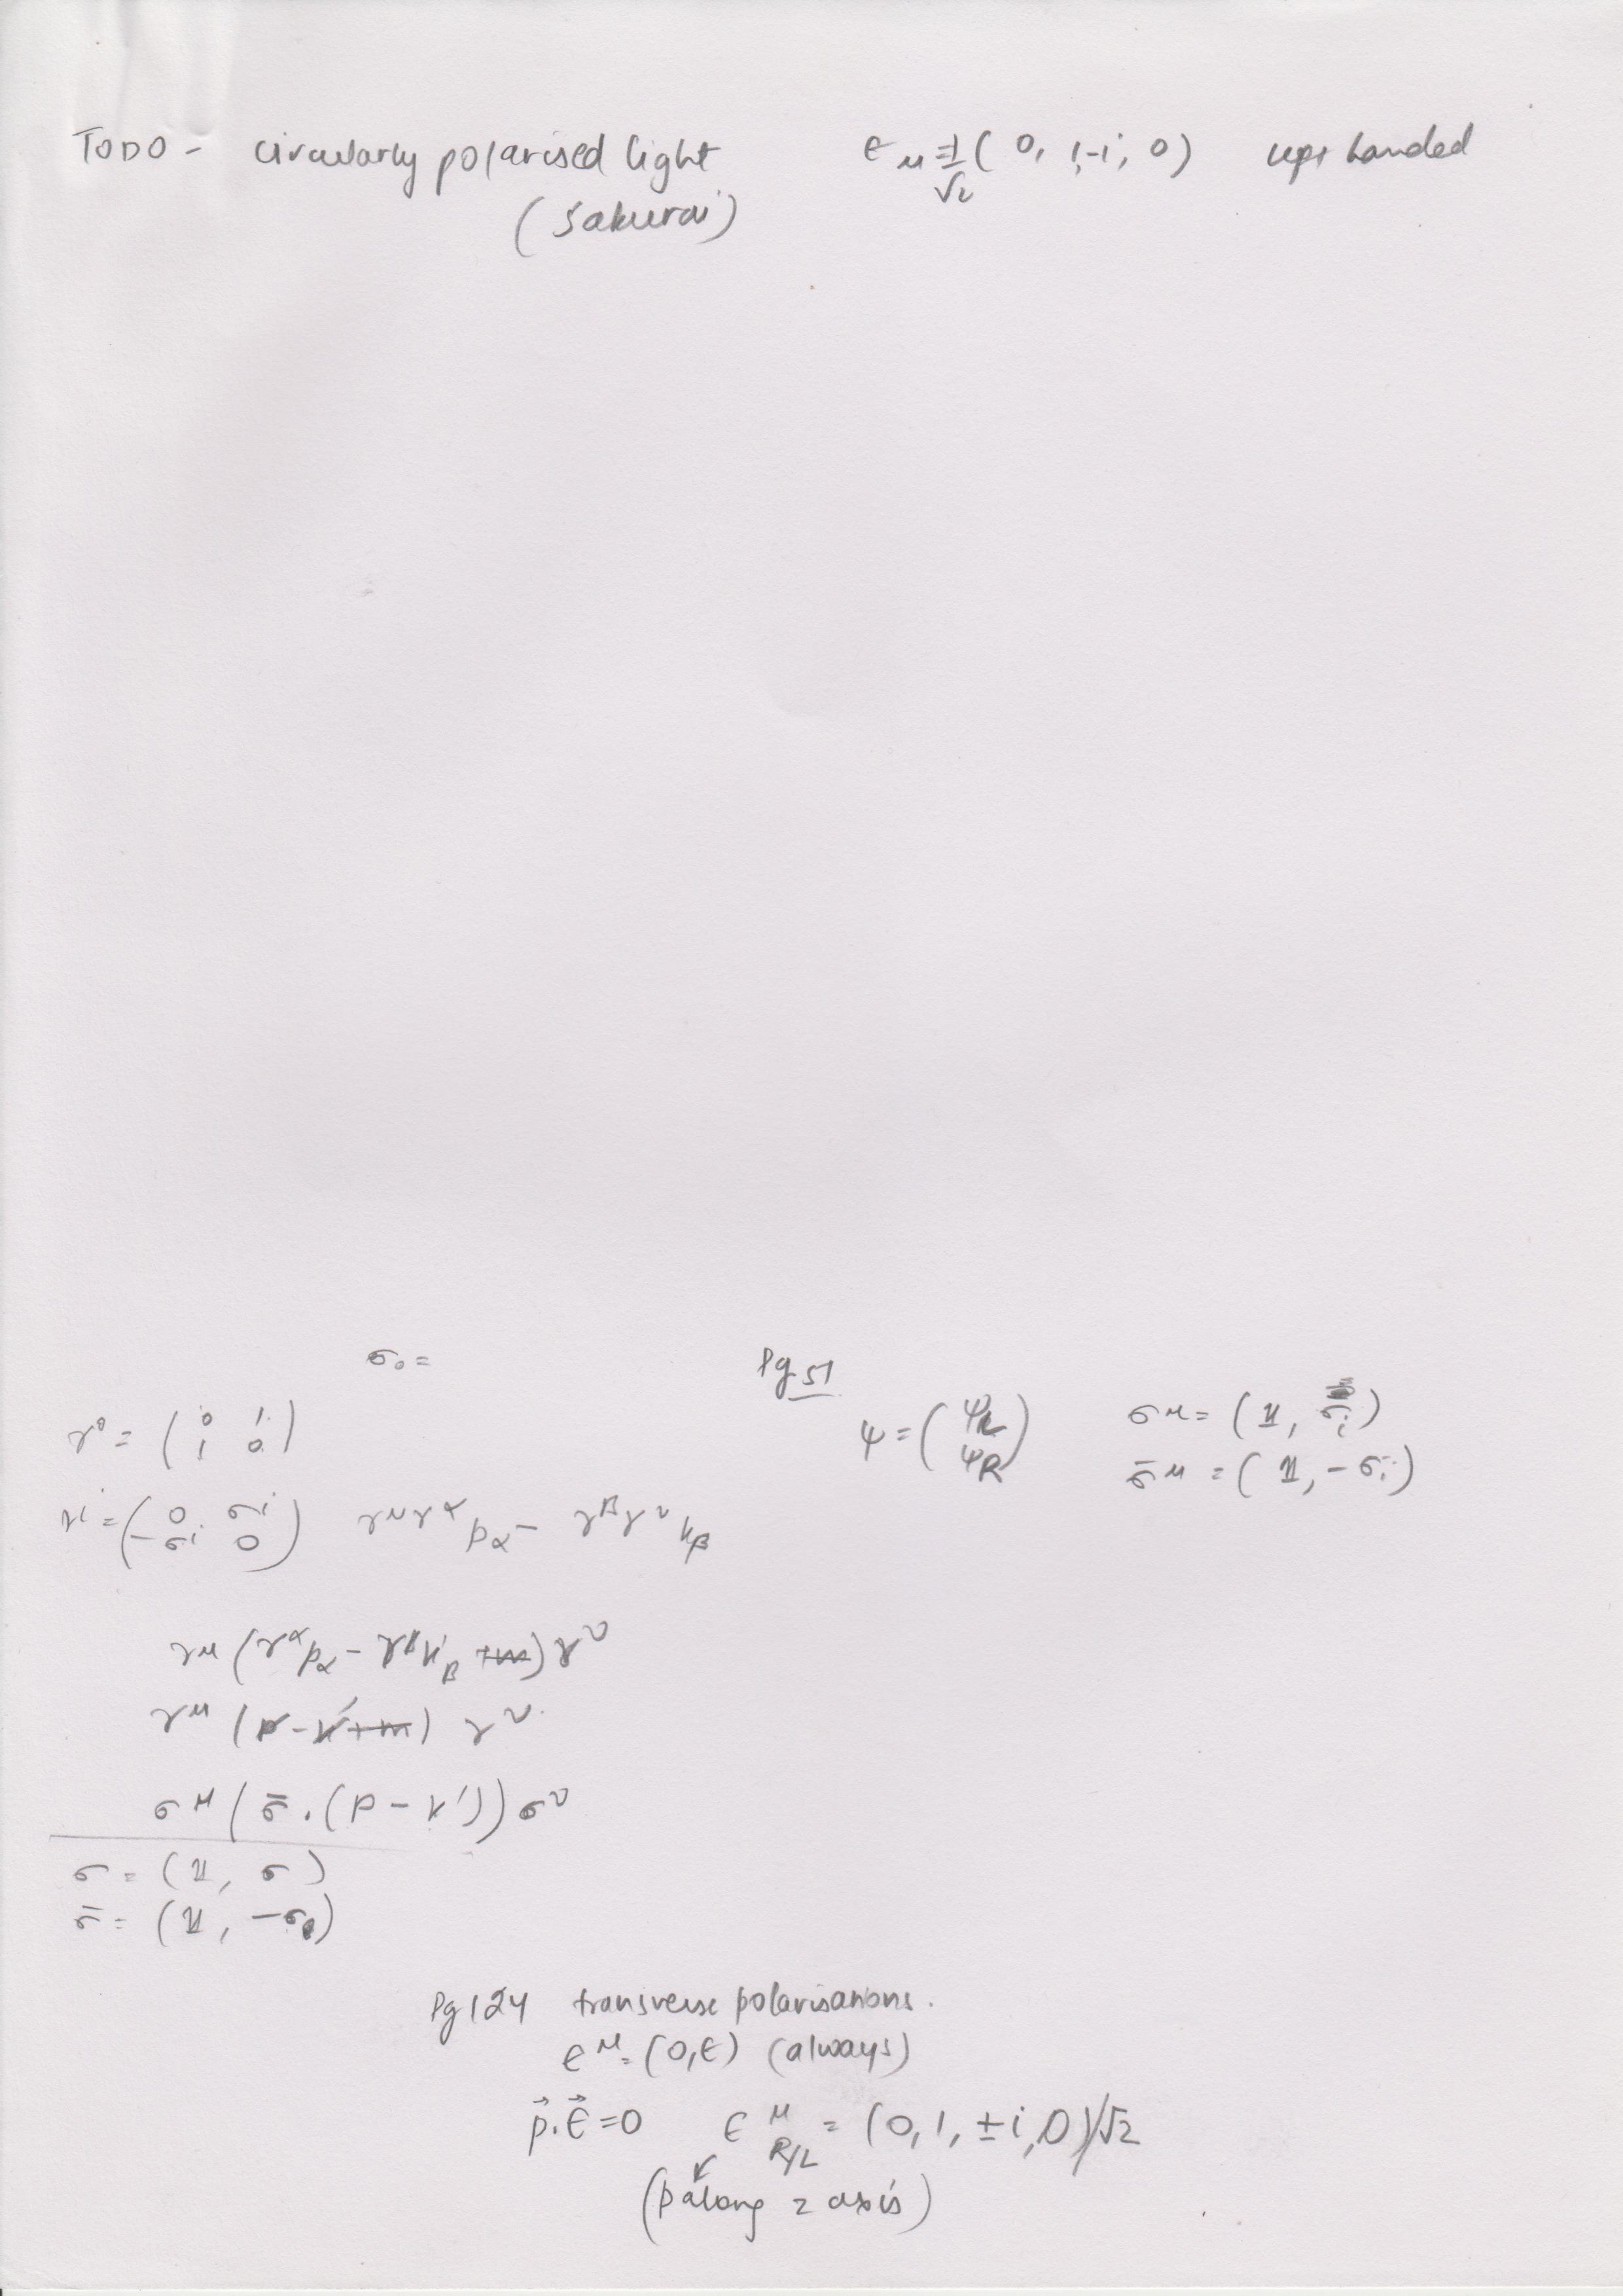 TODO - circularly polarised light ϵ_μ = 1/√2 ( 0, 1, -i, 0) handed
(Sakurai)
σ₀ =
Pg 51
γ⁰ = ( 0 1 / 1 0 )
ψ = ( ψ_L / ψ_R ) σ^μ = (𝟙, σ_i)
σ̄^μ = (𝟙, -σ_i)
γ^i = ( 0 σ^i / -σ^i 0 ) γ^μ γ^α p_α - γ^β γ^ν k_β
γ^μ (γ^α p_α - γ^β k'_β +m) γ^ν
γ^μ (p̸ - k̸' + m) γ^ν
σ^μ ( σ̄ . (p - k')) σ^ν
σ = (𝟙, σ)
σ̄ = (𝟙, -σ)
Pg 124 transverse polarisations.
ϵ^μ = (0, ϵ) (always)
p⃗ . ϵ⃗ = 0 ϵ^μ_R/L = (0, 1, ±i, 0)/√2
(p along z axis)